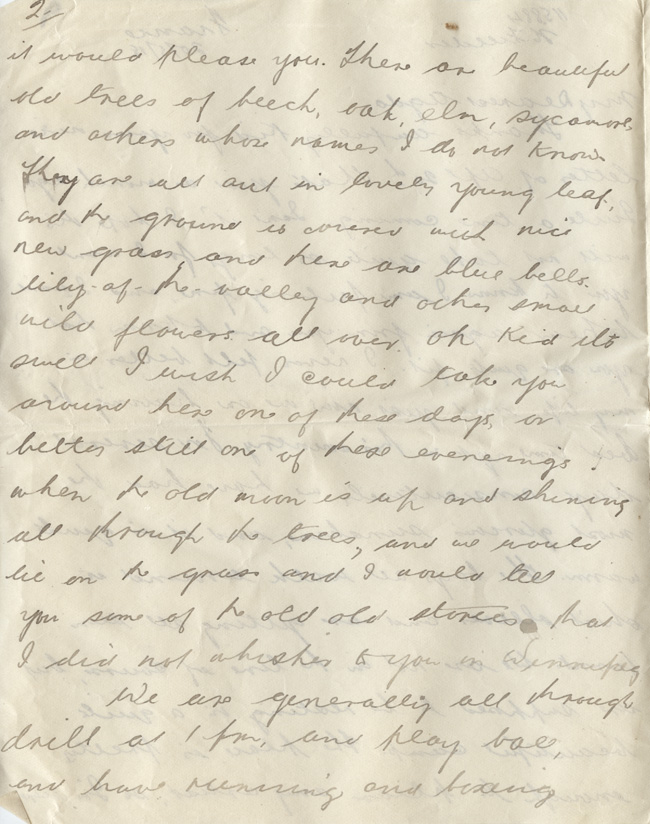 2/
it would please you. There are beautiful
old trees of beech, oak, elm, sycamores
and others whose names I do not know
They are all out in lovely young leaf,
and the ground is covered with nice
new grass, and there are blue bells.
lily-of-the-valley and other small
wild flowers all over. Oh Kid its
swell I wish I could take you
around here one of these days, or
better still one of these evenings,
when the old moon is up and shining
all through the trees, and we would
lie on the grass and I would tell
you some of the old old stories that
I did not whisper to you in Winnipeg
We are generally all through
drill at 1 pm, and play ball,
and have running and boxing